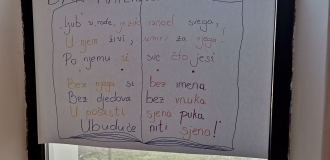 ljub' u, rode, jezik iznad svega,
U njem živi, umiri za njega!
Po njemu si sve što jesi
Bez njega si bez imena
Bez djedova bez unuka
U pošasti sjena puka
Ubuduće niti sjena!